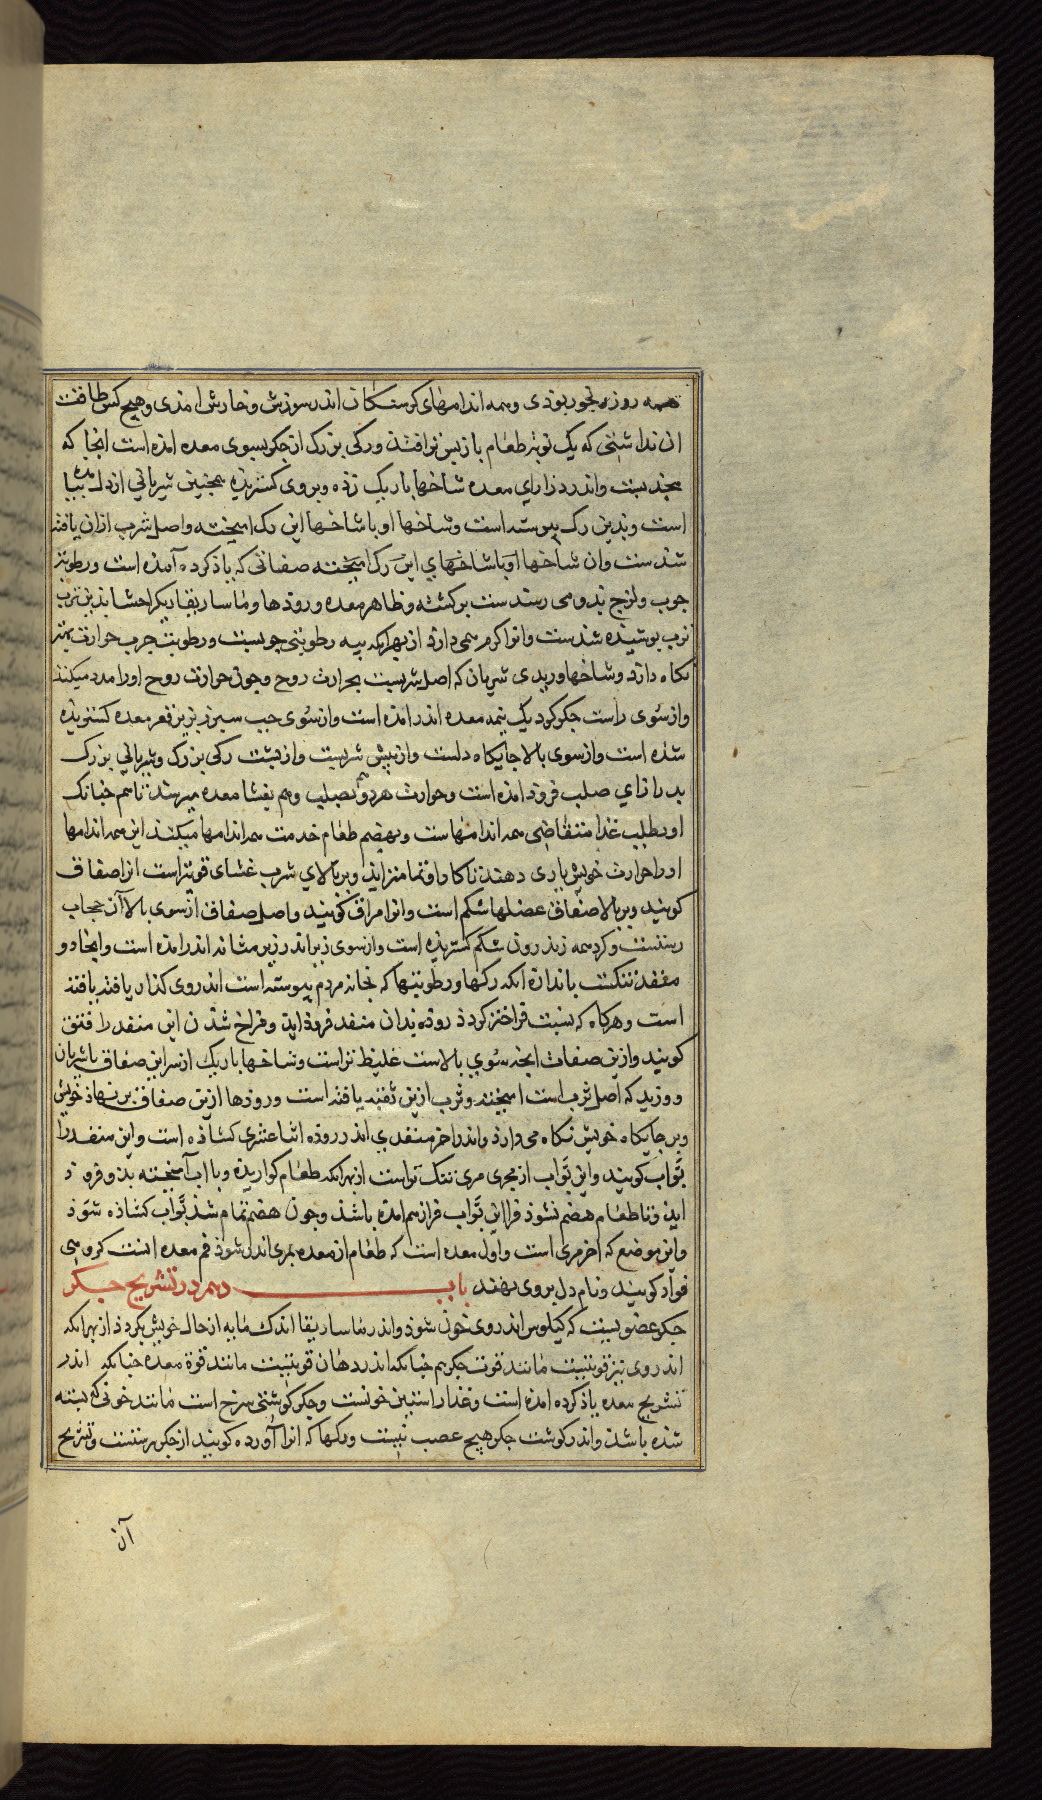 همه روزه رنجور بوذی و همه اندامهای کرسنکان اندر سوزش و خارش امذی و هیچ کس طاقت
ان نداشتی که یک نوبتر طعام بازپس تر افتذ و رکی بزرک از جکر بسوی معده امذه است انجا که
محدبست و اندر درازای معده شاخها باریک زذه و بروی کستریذه همچنین شریانی از دل بیامده
است و بذین رک پیوسته است و شاخها او با شاخها این رک امیخته و اصل ثرب ازان یافته
شذست و ان شاخها او با شاخهای این رک امیخته صفاتی که یاذ کرده آمذه است و رطوبتی
چرب و لزج بذو می رسذ ست برکشته و ظاهر معده و روذها و ماساریقا دیکر احشا بذین ثرب
ثرب پوشیذه شذست و انرا کرم همی دارذ از بهر انکه پیه رطوبتی چربست و رطوبت چرب حرارت بهتر
نکاه دارذ و شاخها وریدی شریان که اصل ثربست بحرارت روح و چون حرارت روح اورا مدد میکند
و از سوی راست جکر کرد یک نیمه معده اندر امذه است و از سوی چپ سپرز بزیر قعر معده کستریذه
شذه است و از سوی بالا جایکاه دلست و از پیش ثربست و از پشت رکی بزرک و شریانی بزرک
بدرازای صلب فروذ امذه است و حرارت هر دو هم بصلب و هم بغشا معده میرسذ تا هم چنانک
او بطلب غذا متقاضی همه اندامهاست و بهضم طعام خدمت همه اندامها میکند این همه اندامها
اورا حرارت خویش یاری دهند تا کار او تمامتر اید و بر بالای ثرب غشای قویتر است انرا صفاق
کویند و بر بالا صفاق عضلها شکم است و انرا مراق کویند و اصل صفاق از سوی بالا آن حجاب
رستست و کرد همه اندرون شکم کستریذه است و از سوی زیر اندر زیر مثانه اندر امذه است و انجا دو
منفذ تنکست باندازه انکه رکها و رطوبتها که بخانه مردم پیوسته است اندر وی کذار یافته یافته
است و هرکاه که بسبت فراختر کردذ روذه بذان منفذ فروذ ایذ و فراخ شذن این منفذ را فتق
کویند و ازین صفاق انچه سوی بالاست غلیظ تر است و شاخها باریک از سر این صفاق با شریان
و وریذ که اصل ثرب است امیخته و ثرب ازین ثقبه یافته است و روذها ازین صفاق بر نهاذ خویش
و بر جایکاه خویش نکاه می دارذ و اندر اخر منفذی اندر روذه اثنا عشری کشاذه است و این منفذ را
بواب کویند و این بواب از مجری مری تنک تر است از بهر انکه طعام کواریذه و با اب آمیخته بذو فروذ
ایذ و تا طعام هضم نشوذ فراین بواب فراز هم امذه باشذ و چون هضم تمام شذ بواب کشاذه شوذ
و این موضع که اخر مری است و اول معده است که طعام از معده بمری اندر شوذ فم معده است کروهی
فوآد کویند و نام دل بروی نهند باب دهم در تشریح جکر
جکر عضویست که کیلوس اندر وی خون شوذ و اندر ماساریقا اندک مایه از حال خویش بکردذ از بهر انکه
اندر وی نیز قوتیست مانند قوت جکر هم چنانکه اندر دهان قوتیست مانند قوة معده چنانکه اندر
تشریح معده یاذ کرده امذه است و غذا راستین خونست و جکر کوشتی سرخ است مانند خونی که بسته
شذه باشذ و اندر کوشت جکر هیچ عصب نیست و رکها که انرا آورده کویند از جکر رستست و تشریح
آن